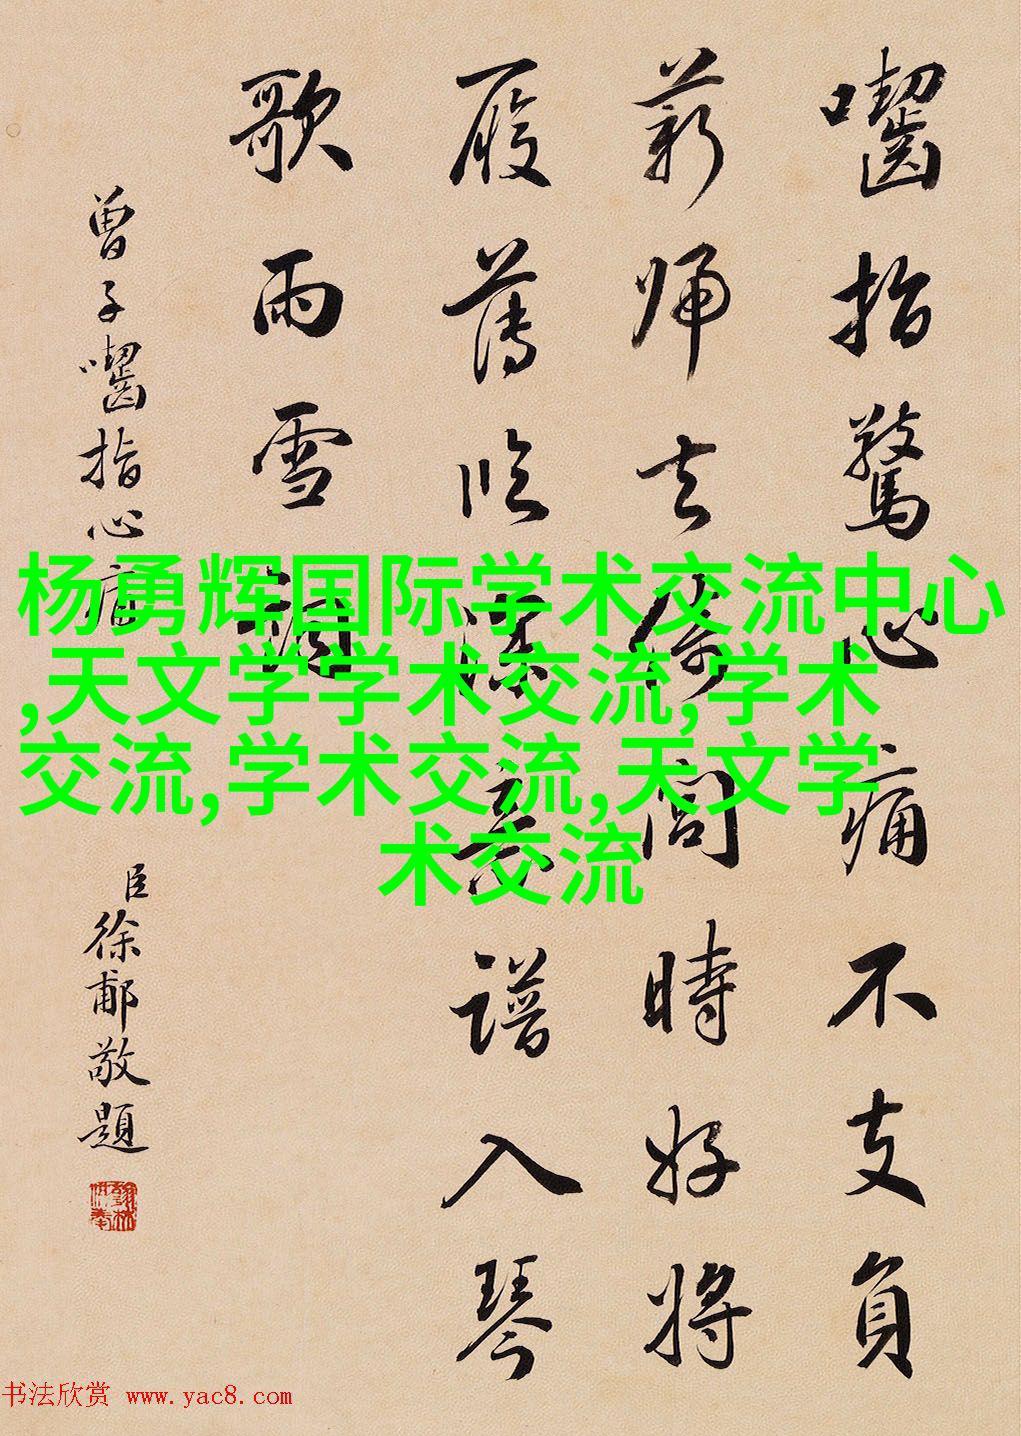 囓指驚心痛不支負
薪歸去倚閭時好將
履薄臨深意譜入琴
歌雨雪詞
曾子囓指心痛
臣徐郙敬題
杨勇辉国际学术交流中心
,天文学学术交流,学术
交流,学术交流,天文学
术交流
书法欣赏 www.yac8.com